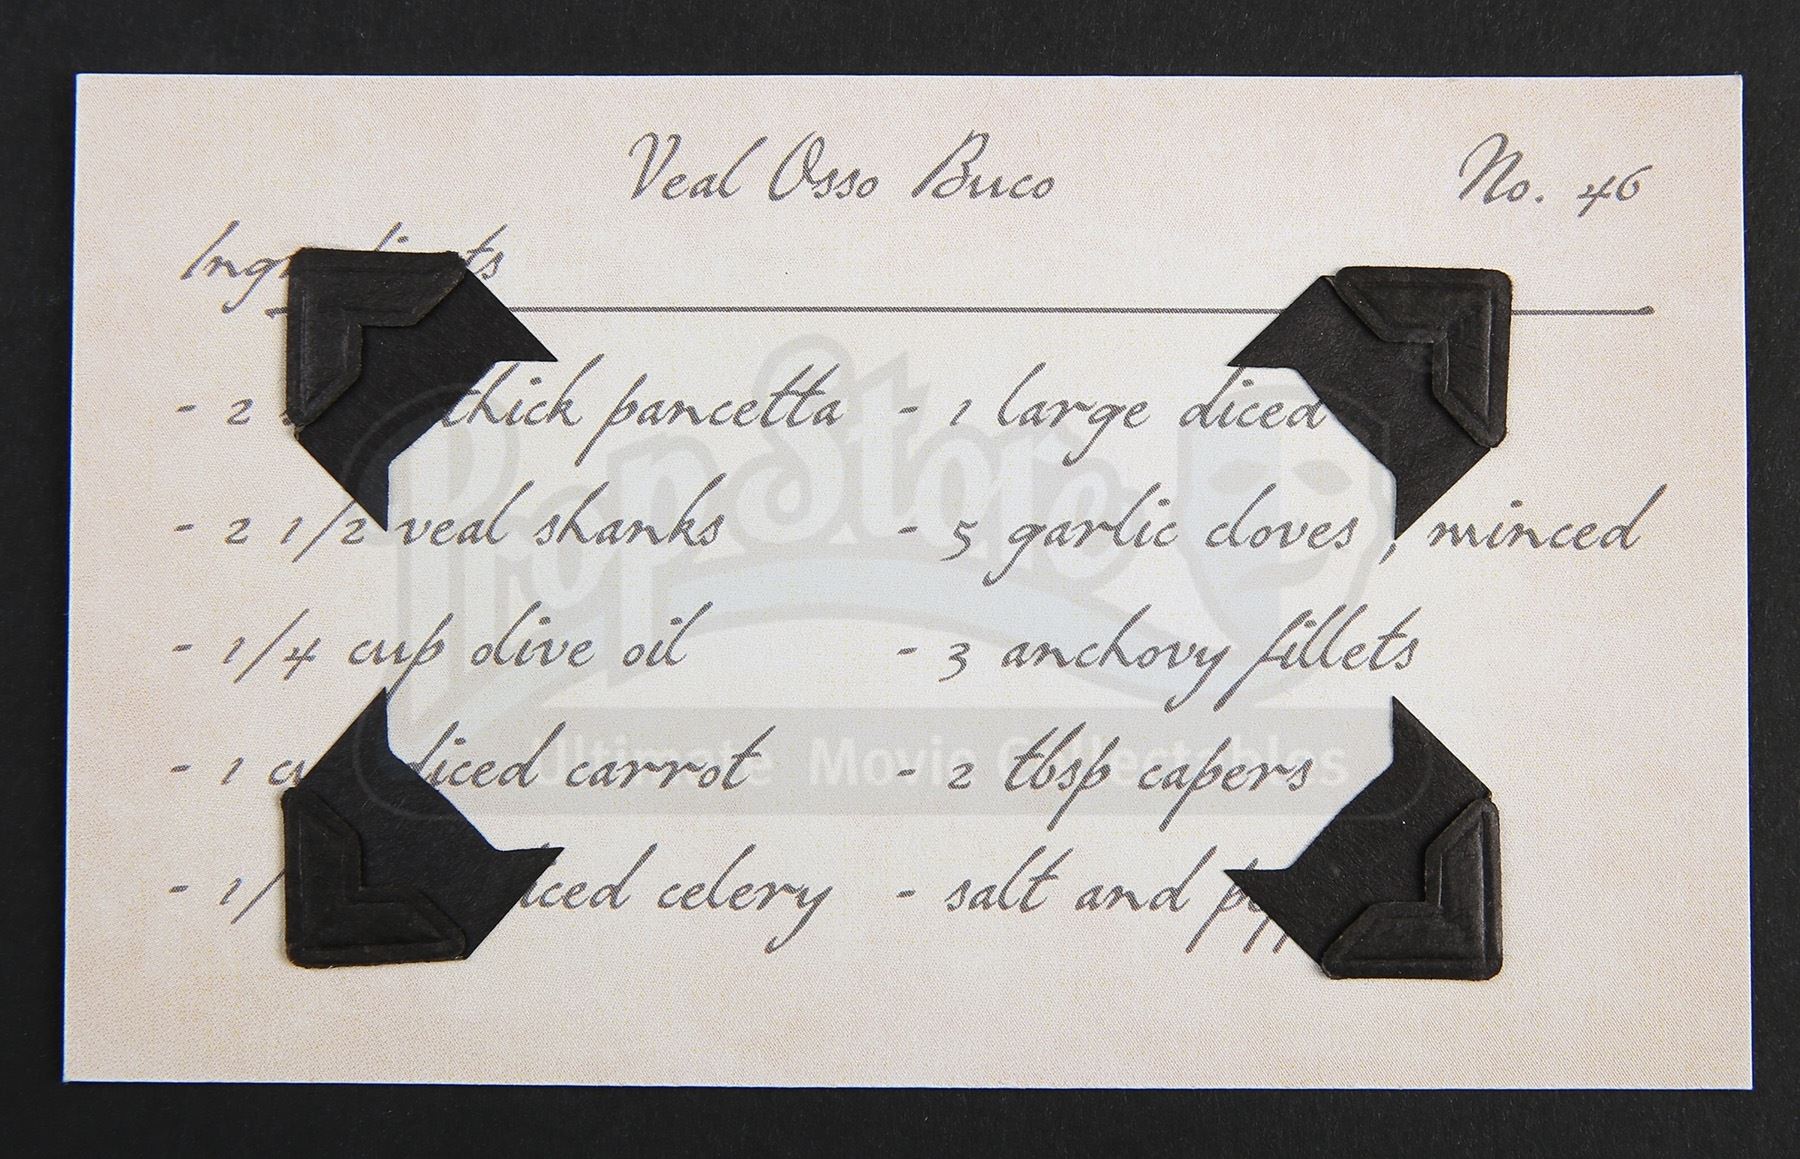 Veal Osso Buco No. 46
- 2 thick pancetta - 1 large diced
- 2 1/2 veal shanks - 5 garlic cloves, minced
- 1/4 cup olive oil - 3 anchovy fillets
- 1 diced carrot - 2 tbsp capers
- celery - salt and
Prop Store
Ultimate Movie Collectables